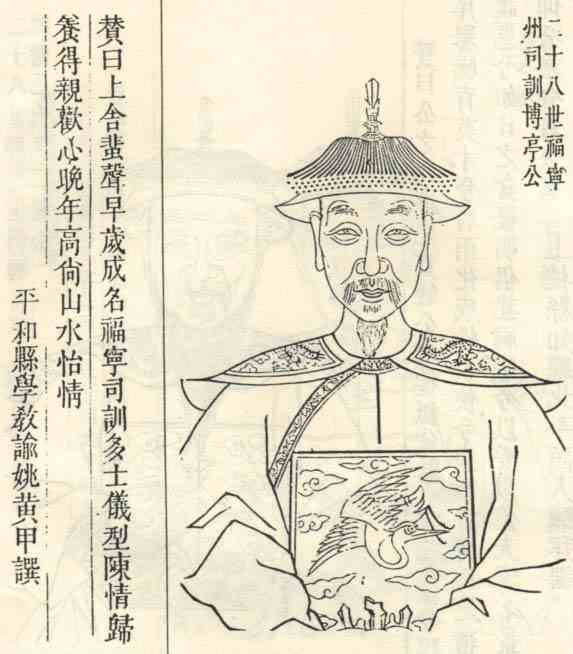 二十八世福寧
州司訓博亭公
賛曰上舍蜚聲早歲成名福寧司訓多士儀型陳情歸
養得親歡心晚年高尙山水怡情
平和縣學敎諭姚黃甲譔